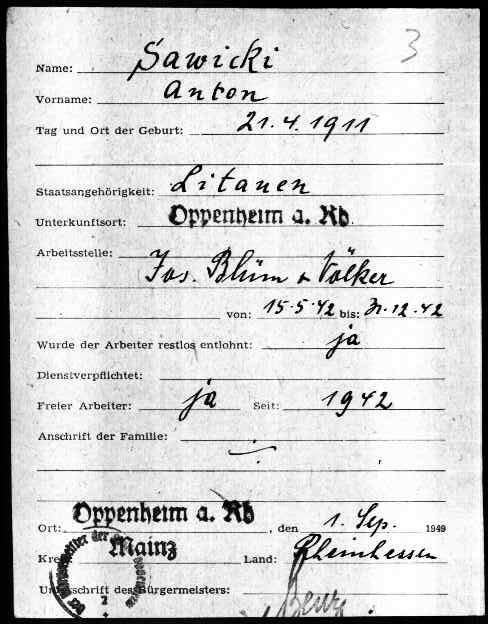 3
Name: Sawicki
Vorname: Anton
Tag und Ort der Geburt: 21.4.1911
Staatsangehörigkeit: Litauen
Unterkunftsort: Oppenheim a. Rh.
Arbeitsstelle:
Jos. Blüm & Völker
von: 15.5.42 bis: 31.12.42
Wurde der Arbeiter restlos entlohnt: ja
Dienstverpflichtet:
Freier Arbeiter: ja Seit: 1942
Anschrift der Familie:
Ort: Oppenheim a. Rh , den 1. Sep. 1949
Mainz Land: Rheinhessen
Unterschrift des Bürgermeisters: